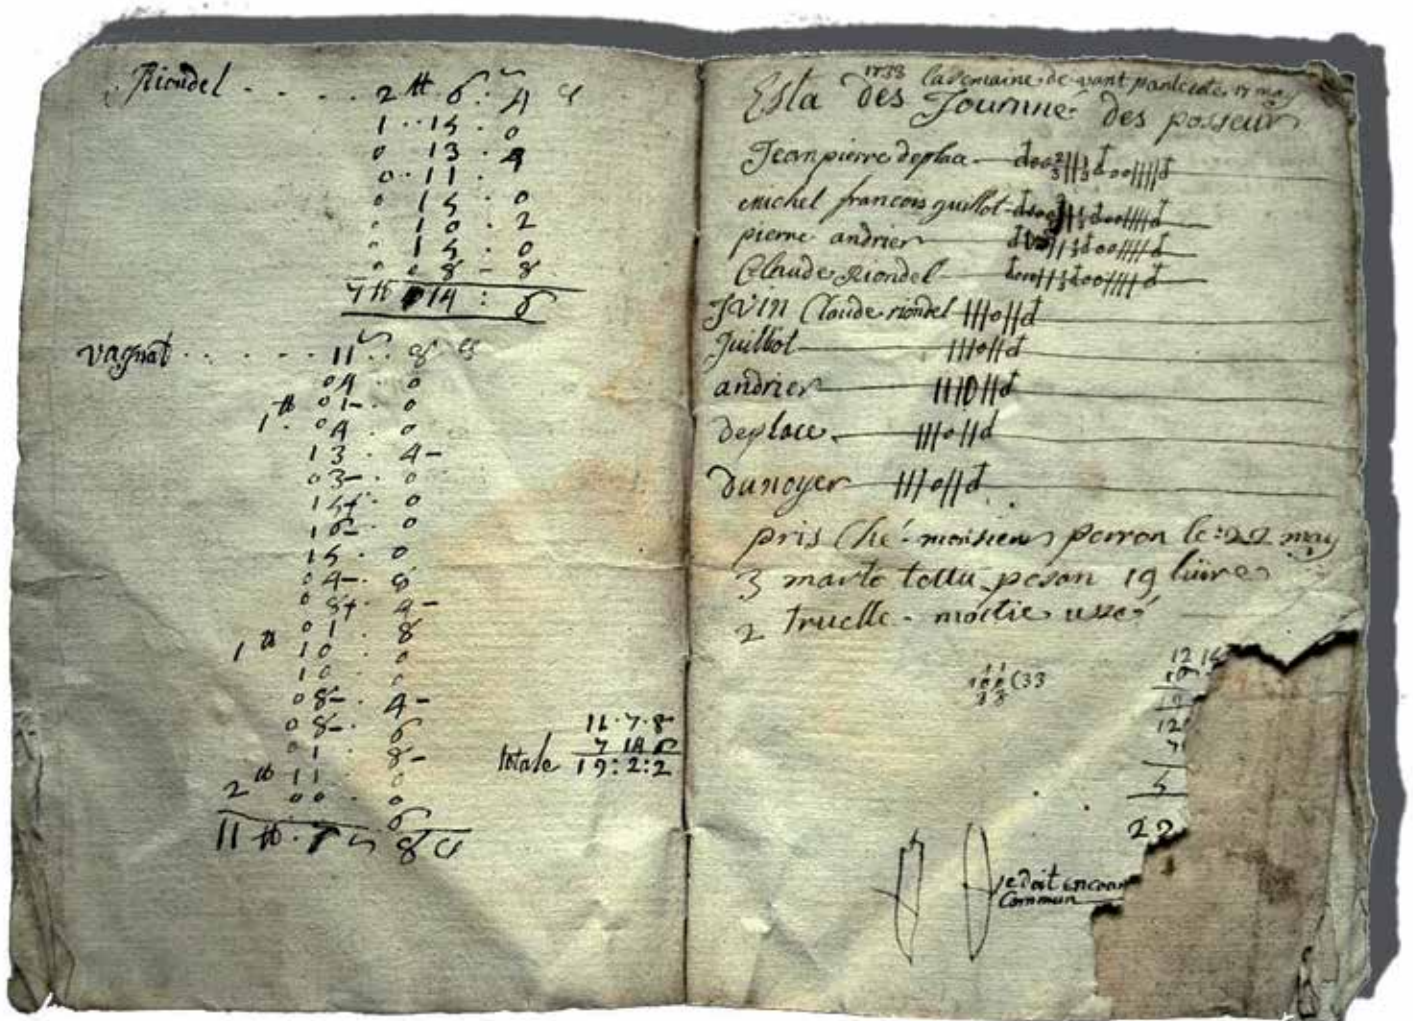 Riondel . . . . . 2 tt 6 : 4
1 . . 15 . 0
0 13 . 4
0 . 11 .
0 15 . 0
0 10 . 2
0 15 . 0
0 0 8 - 8
7 tt 14 : 6
vagnat . . . . . . 11 . . 8
04 . 0
1 tt 01 - . 0
04 . 0
13 . 4 -
03 - . 0
0
0
15 . 0
04 - . 6
4 -
01 . 8
1 tt 10 . 0
10 . 0
08 - . 4 -
08 - . 6
01 8 -
2 tt 11 . 0
00 . 0
11 tt . 7 s 8
11 . 7 . 8
7 14 6
totale 19 : 2 : 2
1738 la semaine devant pantecote 17 may
Esta des Journne des posseur
Jean pierre deplace
michel francois guillot
pierre andrier
Claude Riondel
JVIN Claude riondel |||o||d
Guillot |||o||d
andrier |||0||d
deplace |||o||d
dunoyer |||o||d
pris Ché monsieur perron le : 22 may
3 marte tettu pesan 19 livre
2 truelle - moetie ussé
(33
12
12
7
5
22
je doit encour
Commun